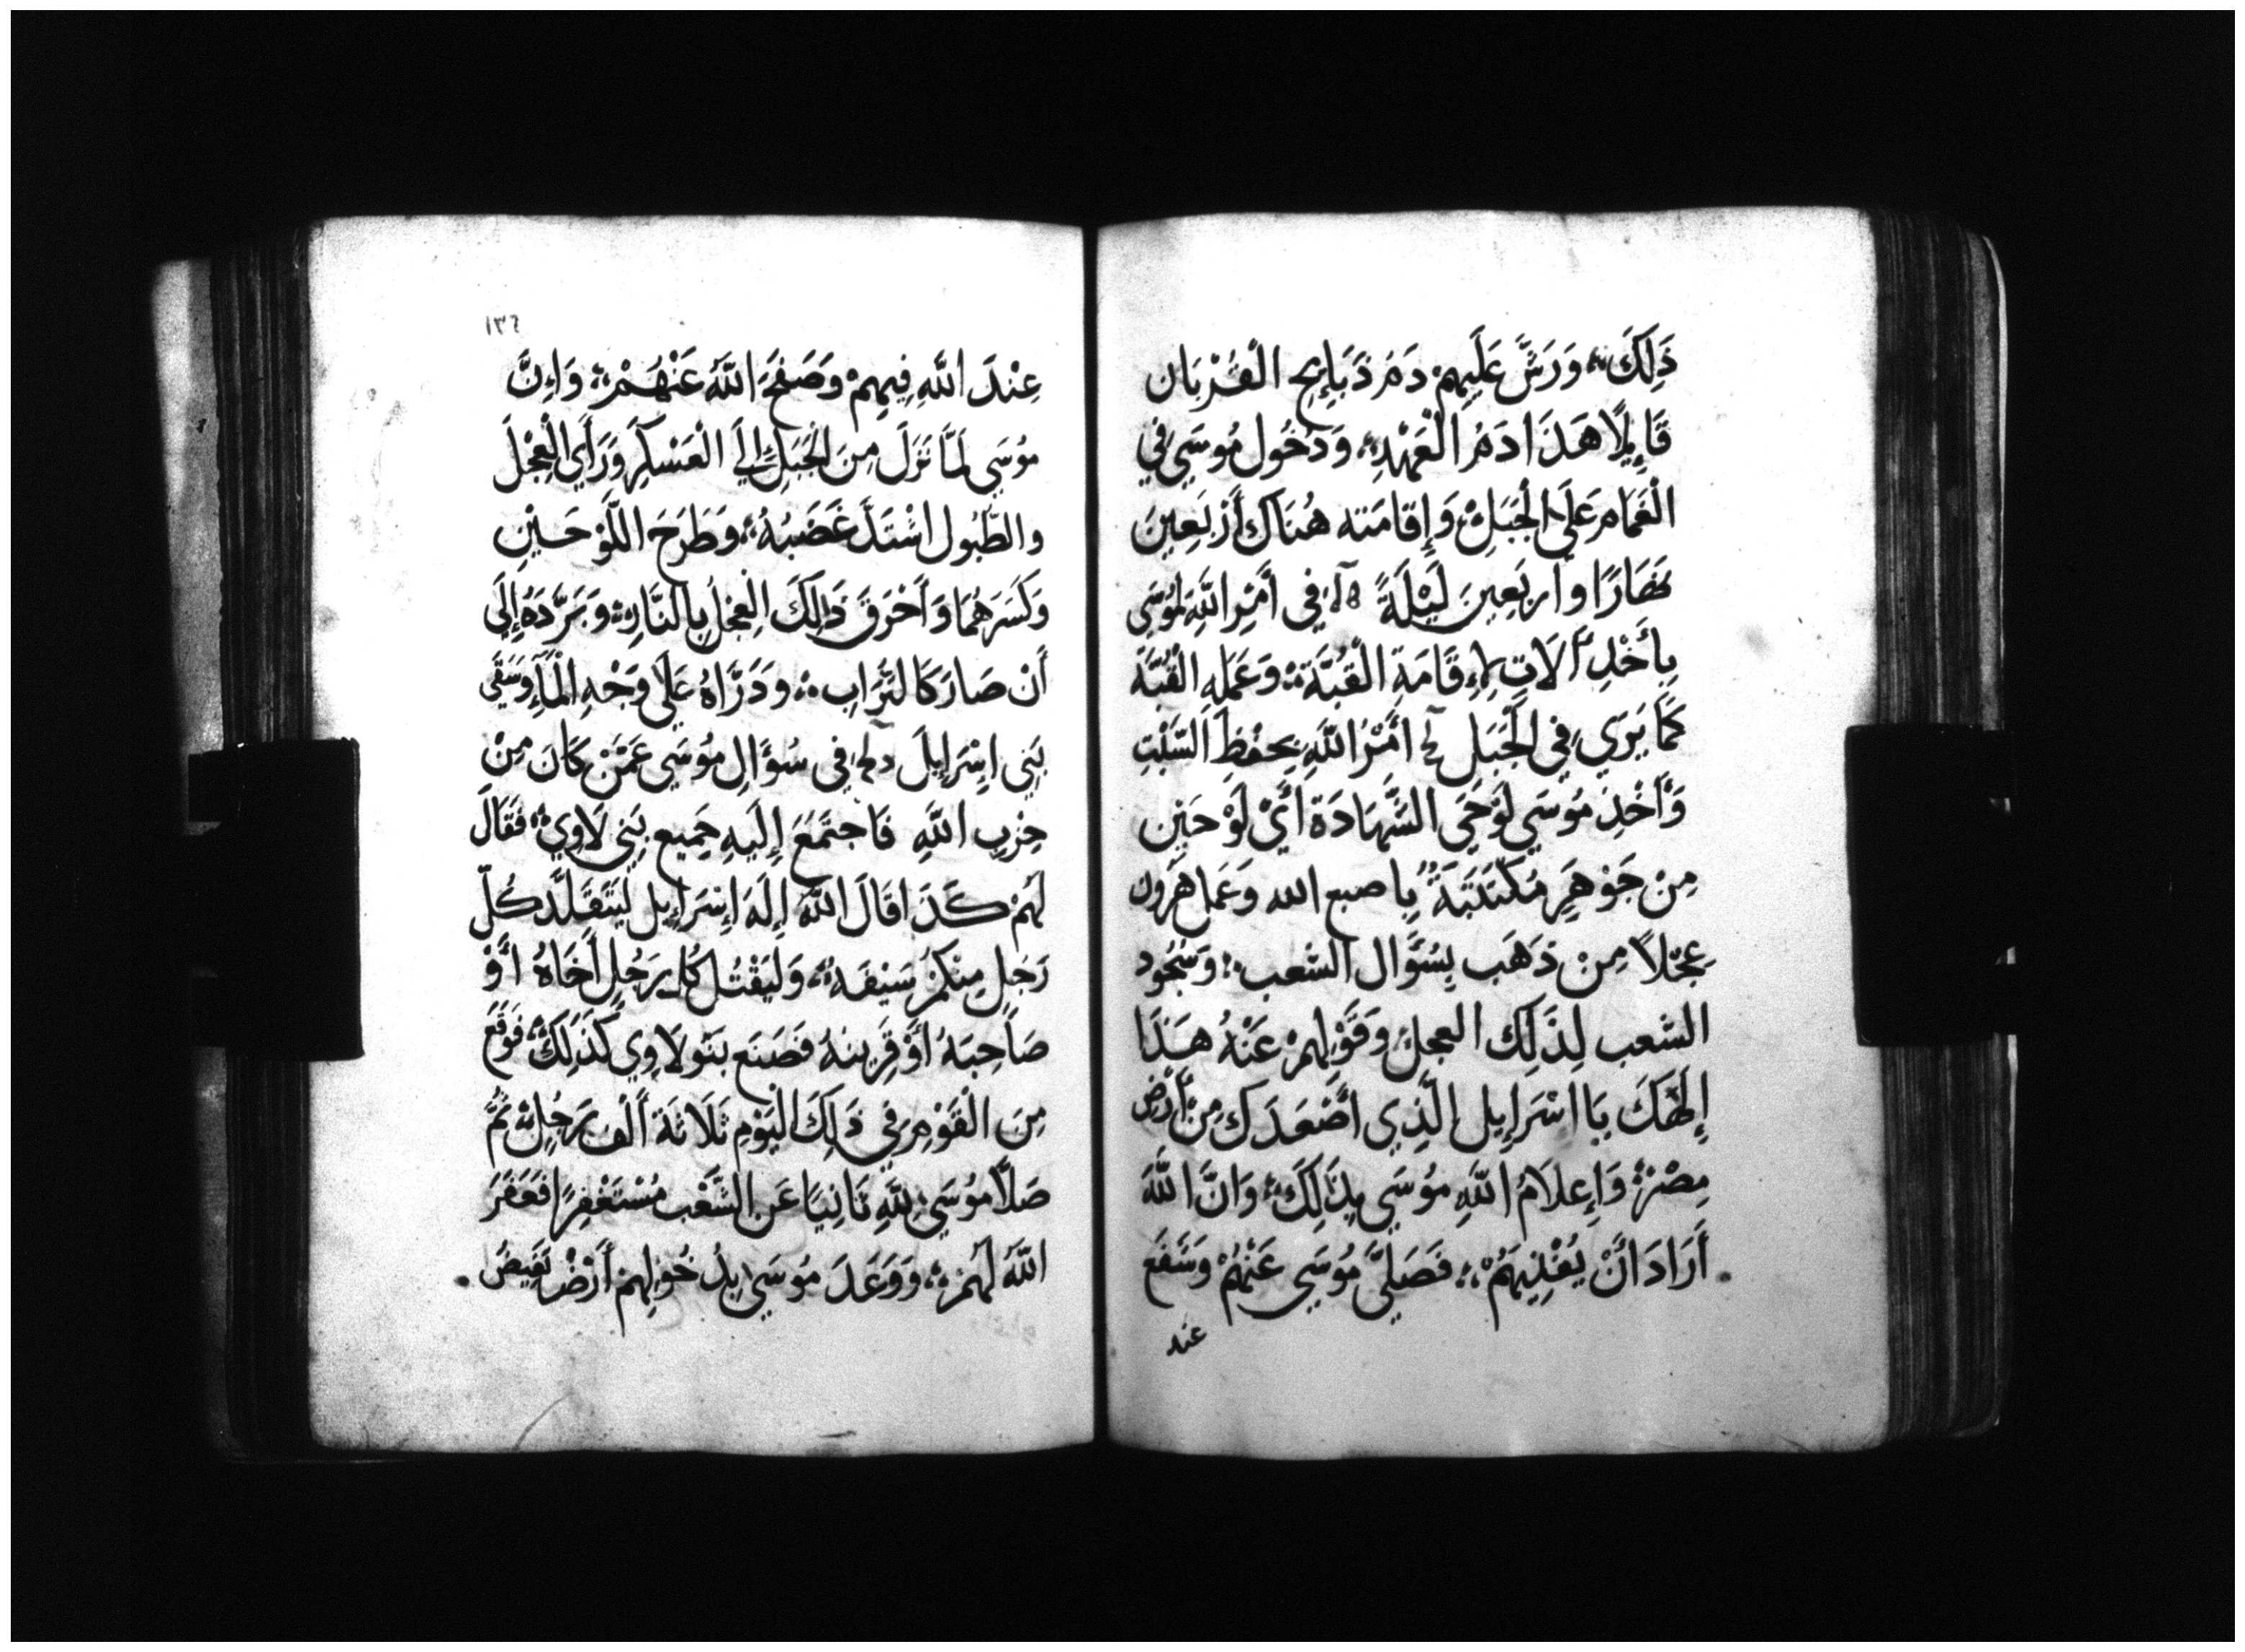 ذَلِكَ؞ وَرَشَّ عَلَيهِمْ دَمَ ذَبَايِحِ الْقُرْبَان
قَايِلًا هَذَا دَمُ الْعَهْدِ؞ وَدُخُول مُوسَي فِي
الْغَمَام عَلَي الْجَبَلِ؞ وَإِقَامَته هُنَاك أَرْبَعِينَ
نَهَارًا واربَعِينَ لَيْلَةً في أَمْرِ اللَّهِ لمُوسَي
بِأَخْذِ آلَاتٍ لِإِقَامَةِ الْقُبَّة؞ وَعَمَلِهِ الْقُبَّةَ
كَمَا يَرَي فِي الْجَبَل أَمْرُ اللَّهِ بِحِفْظِ السَّبْتِ
وَأَخْذِ مُوسَي لَوْحَي الشَّهَادَة أَيْ لَوْحَينِ
مِنْ جَوْهَرِ مُكْتَتَبَةً بِاصبع الله وَعَمل هَرُون
عِجْلًا مِنْ ذَهَب بِسُؤَال الشعب؞ وَسُجُود
الشعب لِذَلِك العجل وَقَوْلِهِمْ عَنْهُ هَذَا
إِلَهَكَ يَا اسْرَايِل الَّذِي أَصْعَدَك مِنْ أَرْضِ
مِصْرَ؞ وَإِعلَامُ اللَّهِ مُوسَي بِذَلِكَ؞ وَانَّ اللَّهَ
أَرَادَ أَنْ يُفْنِيهِمْ؞ فَصَلَّي مُوسَي عَنْهُمْ وَشَفَعَ
عند
١٣٦
عِنْدَ اللَّهِ فِيهِمْ وَصَفَحَ اللَّهُ عَنْهُمْ؞ وَإِنَّ
مُوسَي لَمَّا نَزَلَ مِنَ الْجَبَلِ إِلَي الْعَسْكَرِ وَرَأَي الْعِجْلَ
والطُّبُول اشْتَدَّ غَضَبُهُ؞ وَطَرَحَ اللَّوْحَيْنِ
وَكَسَرَهُمَا وَأَحْرَقَ ذَالِكَ الْعِجْل بِالنَّارِ؞ وَبَرَّدَهُ إِلَي
أَنْ صَارَ كَالتُّرَابِ؞ وَذَرَّاهُ عَلَي وَجْهِ الْمَآءِ وَسَقَي
بَنِي اِسْرَايِلَ في سُؤَالِ مُوسَي عَمَّنْ كَانَ مِنْ
حِزْبِ اللَّهِ فَاجتَمَعَ إِلَيهِ جَمِيع بَنِي لَاوِي؞ فَقَالَ
لَهُمْ كَذَا قَالَ اللَّهُ إِلَهَ إِسْرَايِل لِيَتَقَلَّد كُلّ
رَجُلٍ مِنكُمْ سَيْفَهِ؞ وَليَقْتُل كُل رَجُلٍ أَخَاهُ أَوْ
صَاحِبَهُ أَوْ قَرِينهُ فَصَنَع بَنُو لَاوِي كَذَلِكَ؞ فَوَقَعَ
مِنَ الْقَوْمِ فِي ذَلِكَ الْيَوْمِ ثَلَاثَة أَلْف رَجُلِ؞ ثُمَّ
صَلَّا مُوسَي لِلَّهِ ثَانِيَا عَن الشَّعْب مُسْتَغْفِرًا فَغَفَرَ
اللَّهُ لَهُمْ؞ وَوَعَدَ مُوسَي بِدُخُولِهِمْ أَرْضَ تَفِيضُ